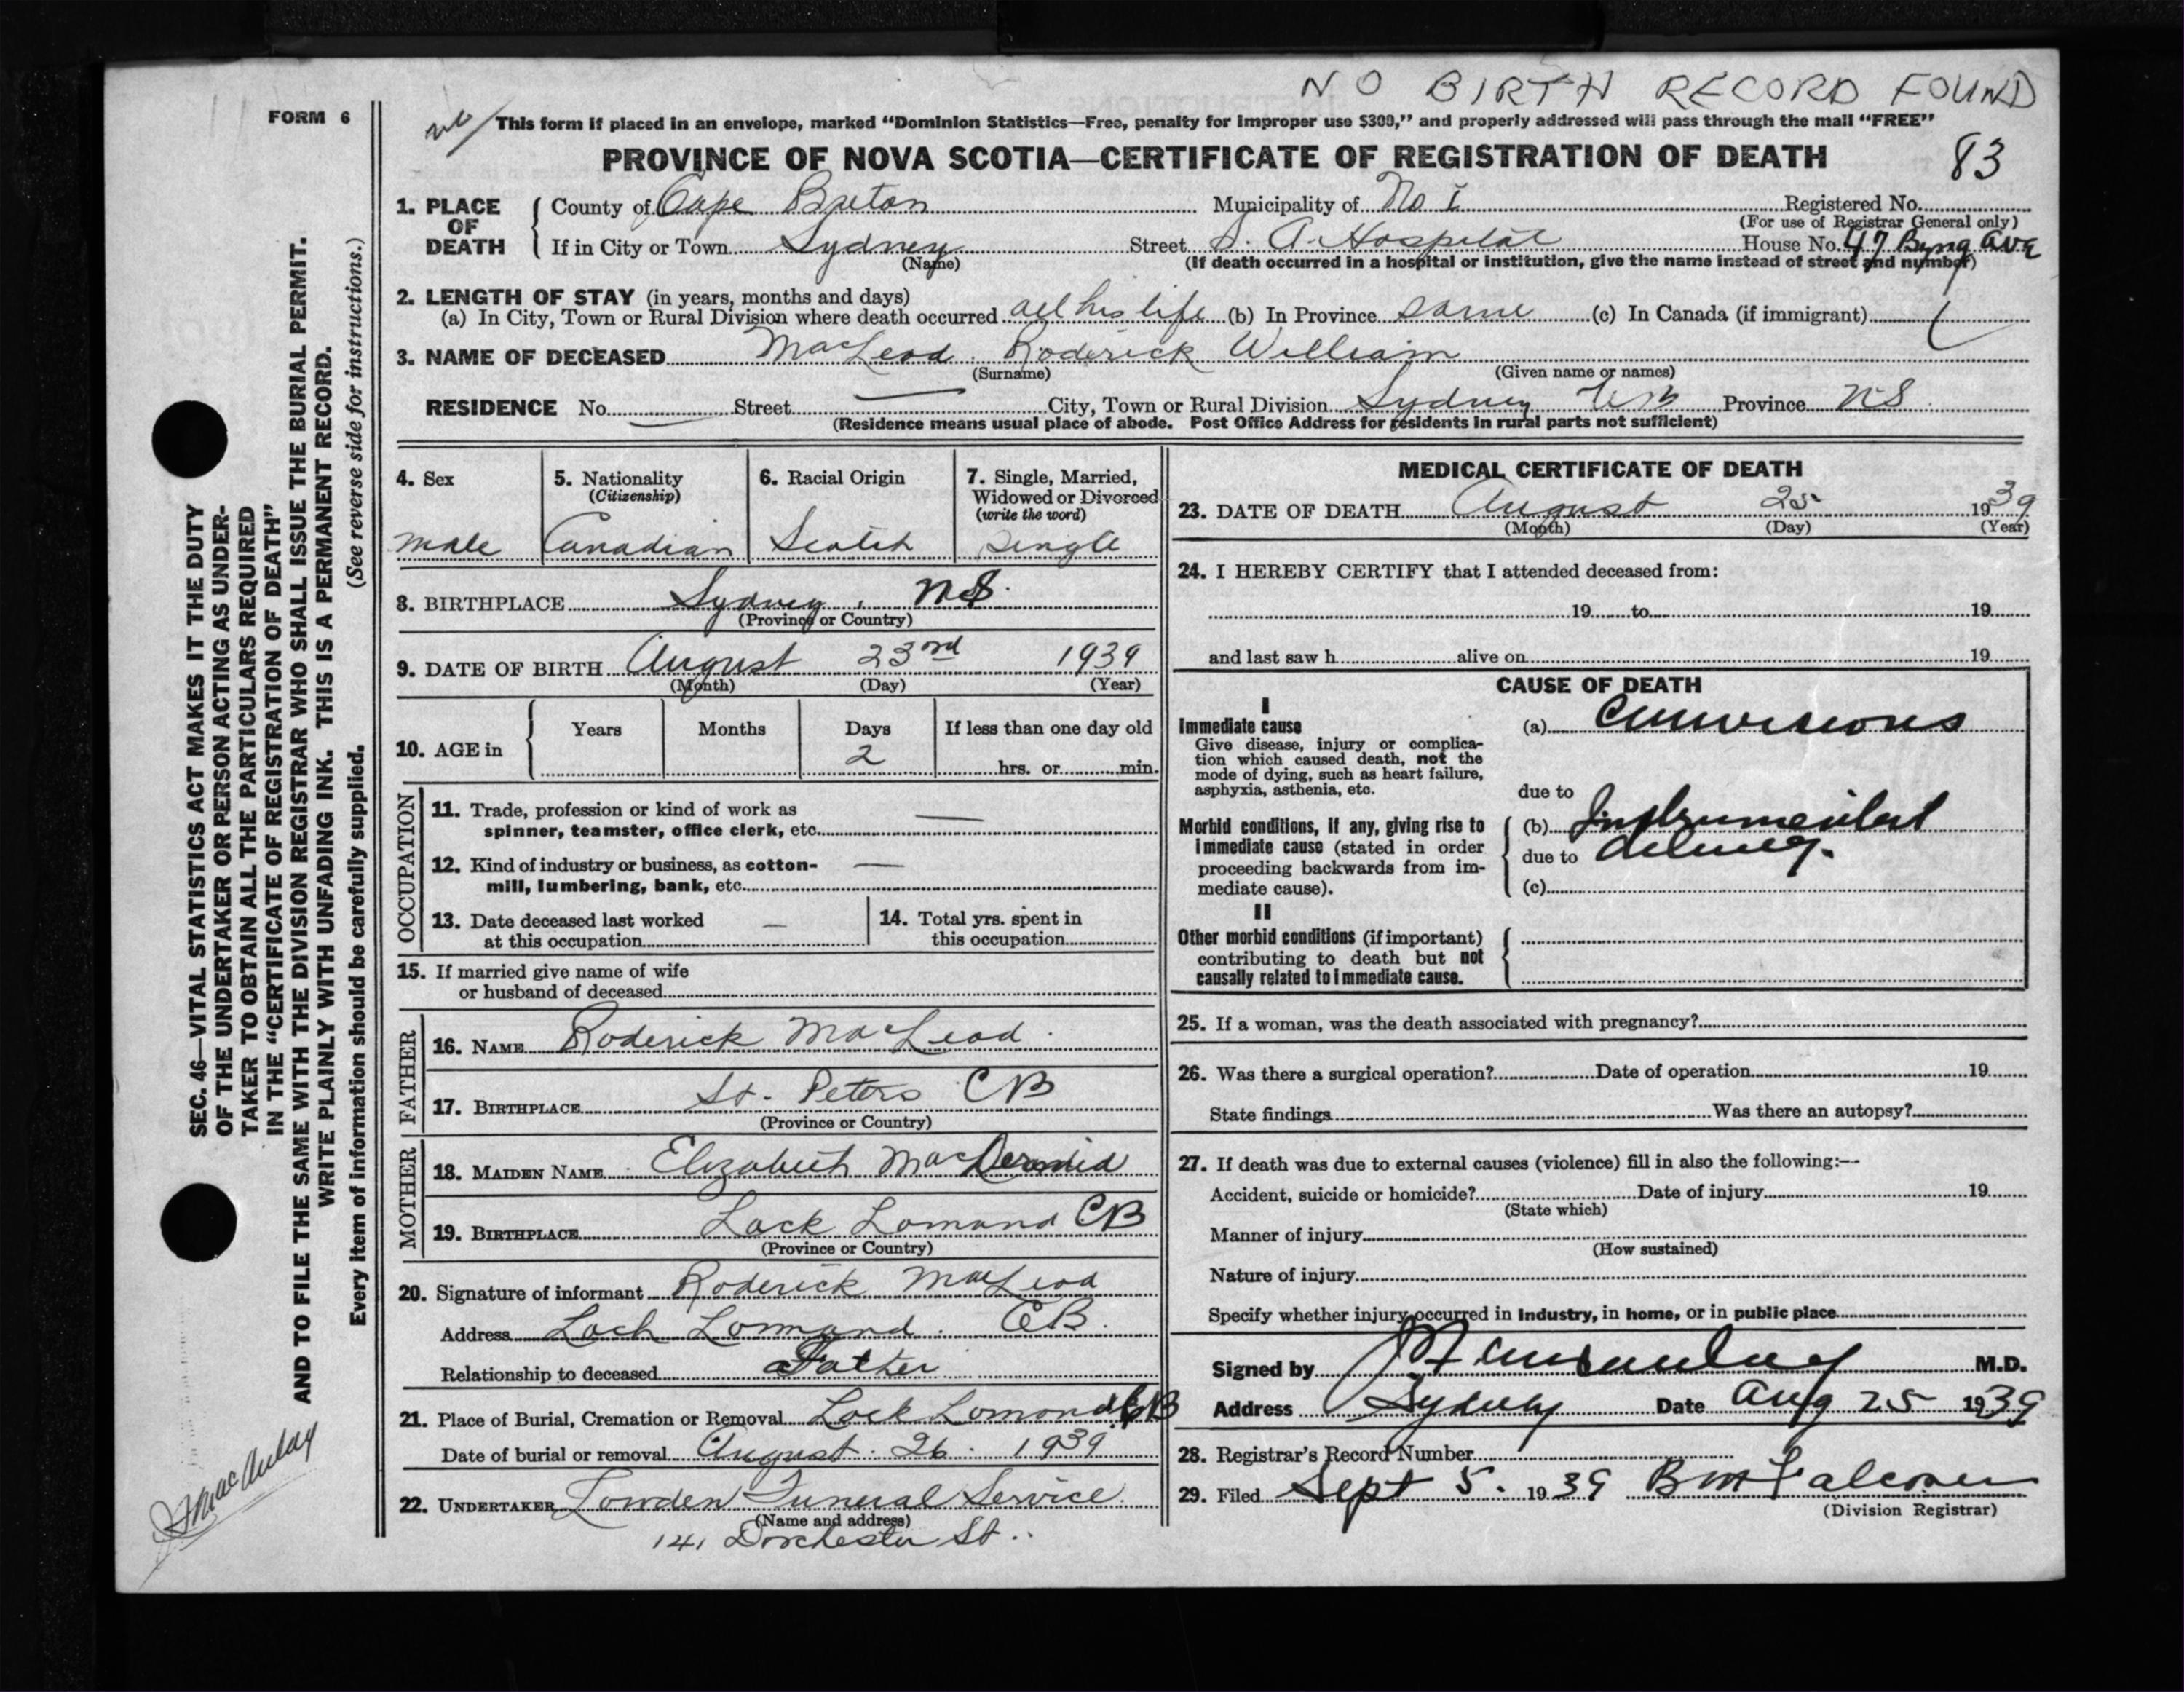 NO BIRTH RECORD FOUND
FORM 6
This form if placed in an envelope, marked “Dominion Statistics—Free, penalty for improper use $300,” and properly addressed will pass through the mail “FREE”
PROVINCE OF NOVA SCOTIA—CERTIFICATE OF REGISTRATION OF DEATH 83
1. PLACE OF DEATH
County of Cape Breton Municipality of No 1 Registered No.
(For use of Registrar General only)
If in City or Town Sydney Street S. A. Hospital House No. 47 Byng Ave
(Name) (If death occurred in a hospital or institution, give the name instead of street and number)
2. LENGTH OF STAY (in years, months and days)
(a) In City, Town or Rural Division where death occurred all his life (b) In Province same (c) In Canada (if immigrant)
3. NAME OF DECEASED MacLeod Roderick William
(Surname) (Given name or names)
RESIDENCE No. Street City, Town or Rural Division Sydney Province NS
(Residence means usual place of abode. Post Office Address for residents in rural parts not sufficient)
4. Sex
male
5. Nationality
(Citizenship)
Canadian
6. Racial Origin
Scotch
7. Single, Married,
Widowed or Divorced
(write the word)
single
8. BIRTHPLACE Sydney, NS.
(Province or Country)
9. DATE OF BIRTH August 23rd 1939
(Month) (Day) (Year)
10. AGE in
Years Months Days If less than one day old
2
hrs. or min.
OCCUPATION
11. Trade, profession or kind of work as
spinner, teamster, office clerk, etc. —
12. Kind of industry or business, as cotton-
mill, lumbering, bank, etc. —
13. Date deceased last worked
at this occupation —
14. Total yrs. spent in
this occupation
15. If married give name of wife
or husband of deceased
FATHER
16. NAME Roderick MacLeod
17. BIRTHPLACE St. Peters CB
(Province or Country)
MOTHER
18. MAIDEN NAME Elizabeth MacDermid
19. BIRTHPLACE Lock Lomand CB
(Province or Country)
20. Signature of informant Roderick MacLeod
Address Loch Lomand CB.
Relationship to deceased Father
21. Place of Burial, Cremation or Removal Lock Lomond CB
Date of burial or removal August 26 1939
22. UNDERTAKER Lowden Funeral Service
(Name and address)
141 Dorchester St.
MEDICAL CERTIFICATE OF DEATH
23. DATE OF DEATH August 25 1939
(Month) (Day) (Year)
24. I HEREBY CERTIFY that I attended deceased from:
19 to 19
and last saw h alive on 19
CAUSE OF DEATH
I
Immediate cause
Give disease, injury or complica-
tion which caused death, not the
mode of dying, such as heart failure,
asphyxia, asthenia, etc.
(a) Convulsions
due to
Morbid conditions, if any, giving rise to
immediate cause (stated in order
proceeding backwards from im-
mediate cause).
(b) Instrumental
due to delivery.
(c)
II
Other morbid conditions (if important)
contributing to death but not
causally related to immediate cause.
25. If a woman, was the death associated with pregnancy?
26. Was there a surgical operation? Date of operation 19
State findings Was there an autopsy?
27. If death was due to external causes (violence) fill in also the following:—
Accident, suicide or homicide? Date of injury 19
(State which)
Manner of injury
(How sustained)
Nature of injury
Specify whether injury occurred in industry, in home, or in public place
Signed by M.D.
Address Sydney Date Aug 25 1939
28. Registrar's Record Number
29. Filed Sept 5. 1939 B M Falconer
(Division Registrar)
SEC. 46—VITAL STATISTICS ACT MAKES IT THE DUTY
OF THE UNDERTAKER OR PERSON ACTING AS UNDER-
TAKER TO OBTAIN ALL THE PARTICULARS REQUIRED
IN THE “CERTIFICATE OF REGISTRATION OF DEATH”
AND TO FILE THE SAME WITH THE DIVISION REGISTRAR WHO SHALL ISSUE THE BURIAL PERMIT.
WRITE PLAINLY WITH UNFADING INK. THIS IS A PERMANENT RECORD.
Every item of information should be carefully supplied. (See reverse side for instructions.)
MacAulay